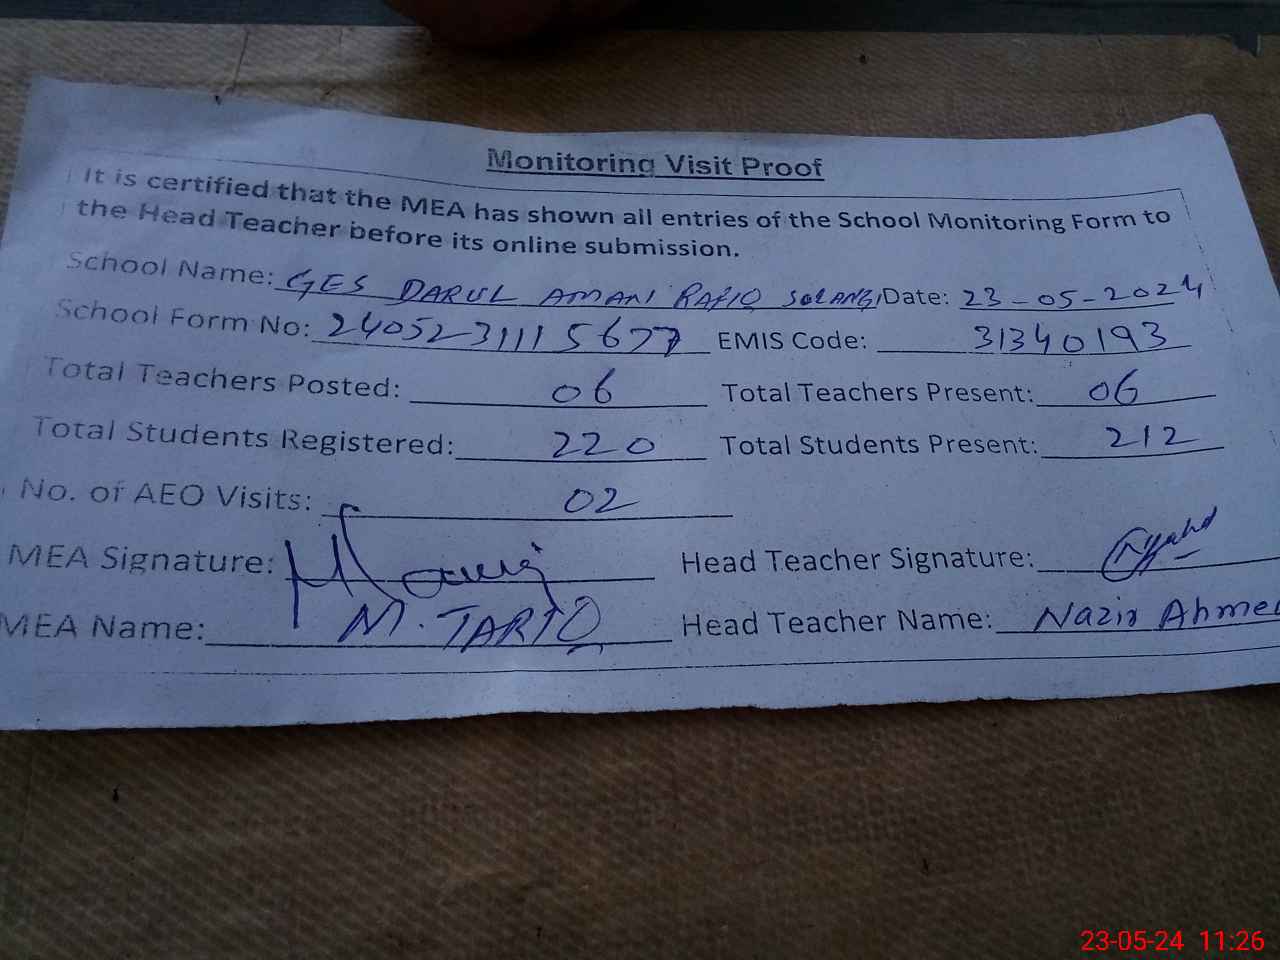 Monitoring Visit Proof
It is certified that the MEA has shown all entries of the School Monitoring Form to
the Head Teacher before its online submission.
School Name: GES DARUL AMAN RAFIQ SOLANGI Date: 23-05-2024
School Form No: 24052311115677 EMIS Code: 31340193
Total Teachers Posted: 06 Total Teachers Present: 06
Total Students Registered: 220 Total Students Present: 212
No. of AEO Visits: 02
MEA Signature: Head Teacher Signature:
MEA Name: M. TARIQ Head Teacher Name: Nazir Ahmed
23-05-24 11:26